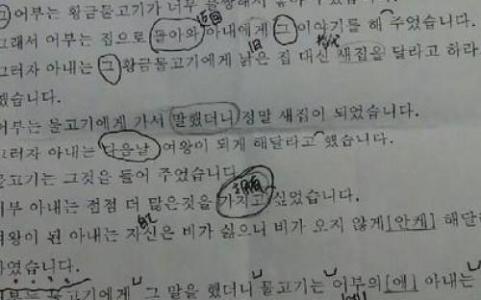 그 어부는 황금물고기가 너무
그래서 어부는 집으로 돌아와 아내에게 그 이야기를 해 주었습니다.
그러자 아내는 그 황금물고기에게 낡은 집 대신 새집을 달라고 하라
했습니다.
어부는 물고기에게 가서 말했더니 정말 새집이 되었습니다.
그러자 아내는 다음날 여왕이 되게 해달라고 했습니다.
물고기는 그것을 들어 주었습니다.
어부 아내는 점점 더 많은것을 가지고 싶었습니다.
여왕이 된 아내는 자신은 비가 싫으니 비가 오지 않게[안케] 해달
하였습니다.
어부는 물고기에게 그 말을 했더니 물고기는 어부의[에] 아내는